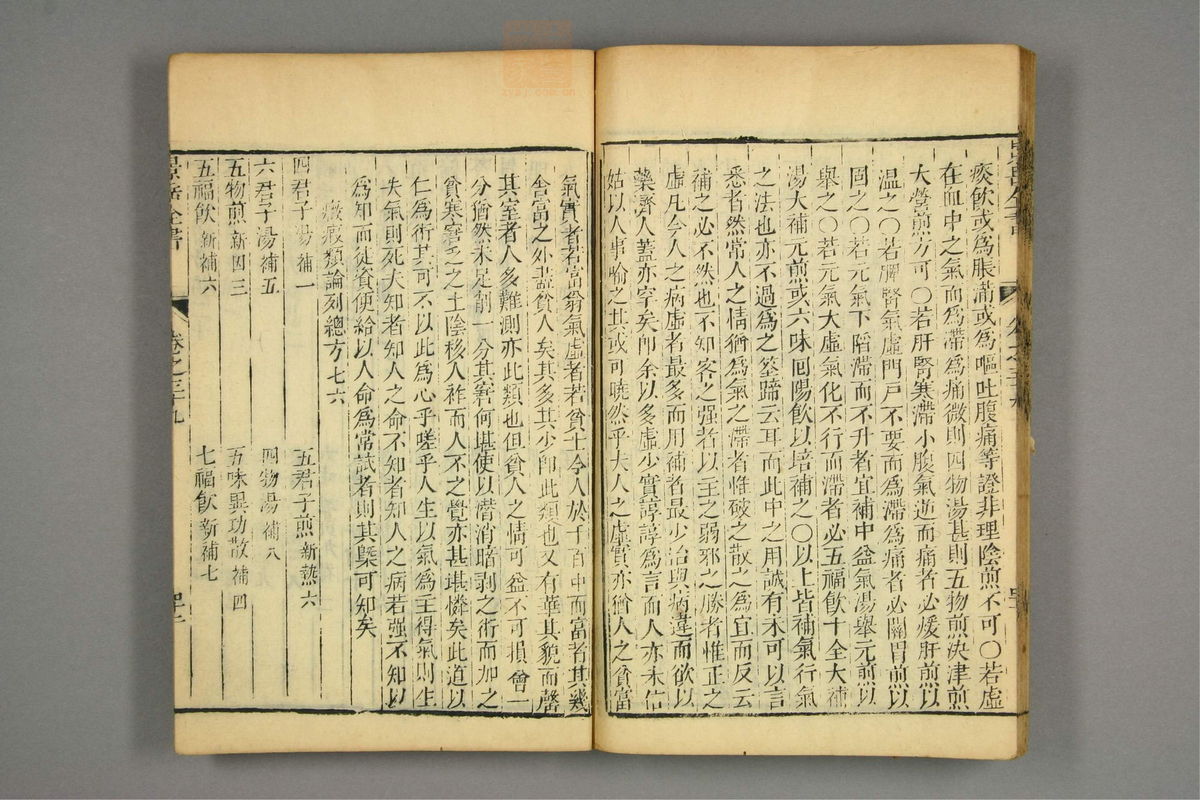 景岳全書
痰飲或為脹滿或為嘔吐腹痛等證非理陰煎不可○若虛
在血中之氣而為滯為痛微則四物湯甚則五物煎決津煎
大營煎方可○若肝腎寒滯小腹氣逆而痛者必煖肝煎以
温之○若脾腎氣虛門戸不要而為滯為痛者必關胃煎以
固之○若元氣下陷滯而不升者宜補中益氣湯舉元煎以
舉之○若元氣大虛氣化不行而滯者必五福飲十全大補
湯大補元煎或六味囘陽飲以培補之○以上皆補氣行氣
之法也亦不過為之筌蹄云耳而此中之用誠有未可以言
悉者然常人之情猶為氣之滯者惟破之散之為宜而反云
補之必不然也不知客之强者以主之弱邪之勝者惟正之
虛凡今人之病虛者最多而用補者最少治與病違而欲以
藥濟人蓋亦罕矣卽余以多虛少實諄諄為言而人亦未信
姑以人事喻之其或可曉然乎夫人之虛實亦猶人之貧富
氣實者若富翁氣虛者若貧士今人於千百中而富者其幾
舍富之外葢貧人矣其多其少卽此類也又有華其貌而罄
其室者人多難測亦此類也但貧人之情可益不可損曾一
分猶然未足削一分其害何堪使以暦消暗剥之術而加之
貧寒窘乏之士陰移人祚而人不之覺亦甚堪憐矣此道以
仁為術其可不以此為心乎嗟乎人生以氣為主得氣則生
失氣則死夫知者知人之命不知者知人之病若强不知以
為知而徒資便給以人命為常試者則其槩可知矣
癥瘕類論列總方七六
四君子湯 補一
五君子煎 新熱六
六君子湯 補五
四物湯 補八
五物煎 新四三
五味異功散 補四
五福飲 新補六
七福飲 新補七
景岳全書
卷之三九